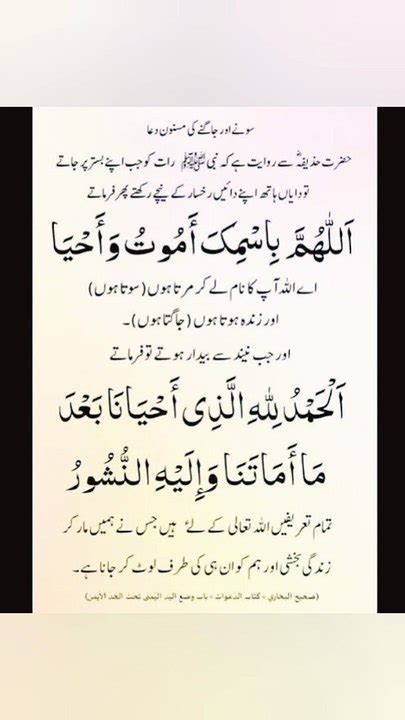 سونے اور جاگنے کی مسنون دعا
حضرت حذیفہؓ سے روایت ہے کہ نبی ﷺ رات کو جب اپنے بستر پر جاتے
تو دایاں ہاتھ اپنے دائیں رخسار کے نیچے رکھتے پھر فرماتے
اَللّٰهُمَّ بِاسْمِکَ أَمُوتُ وَأَحْيَا
اے اللہ آپ کا نام لے کر مرتا ہوں (سوتا ہوں)
اور زندہ ہوتا ہوں (جاگتا ہوں)۔
اور جب نیند سے بیدار ہوتے تو فرماتے
اَلْحَمْدُ لِلّٰهِ الَّذِی أَحْيَانَا بَعْدَ
مَا أَمَاتَنَا وَإِلَيْهِ النُّشُورُ
تمام تعریفیں اللہ تعالی کے لئے ہیں جس نے ہمیں مار کر
زندگی بخشی اور ہم کو ان ہی کی طرف لوٹ کر جانا ہے۔
(صحیح البخاري ، کتاب الدعوات ، باب وضع اليد اليمنى تحت الخد الأيمن)